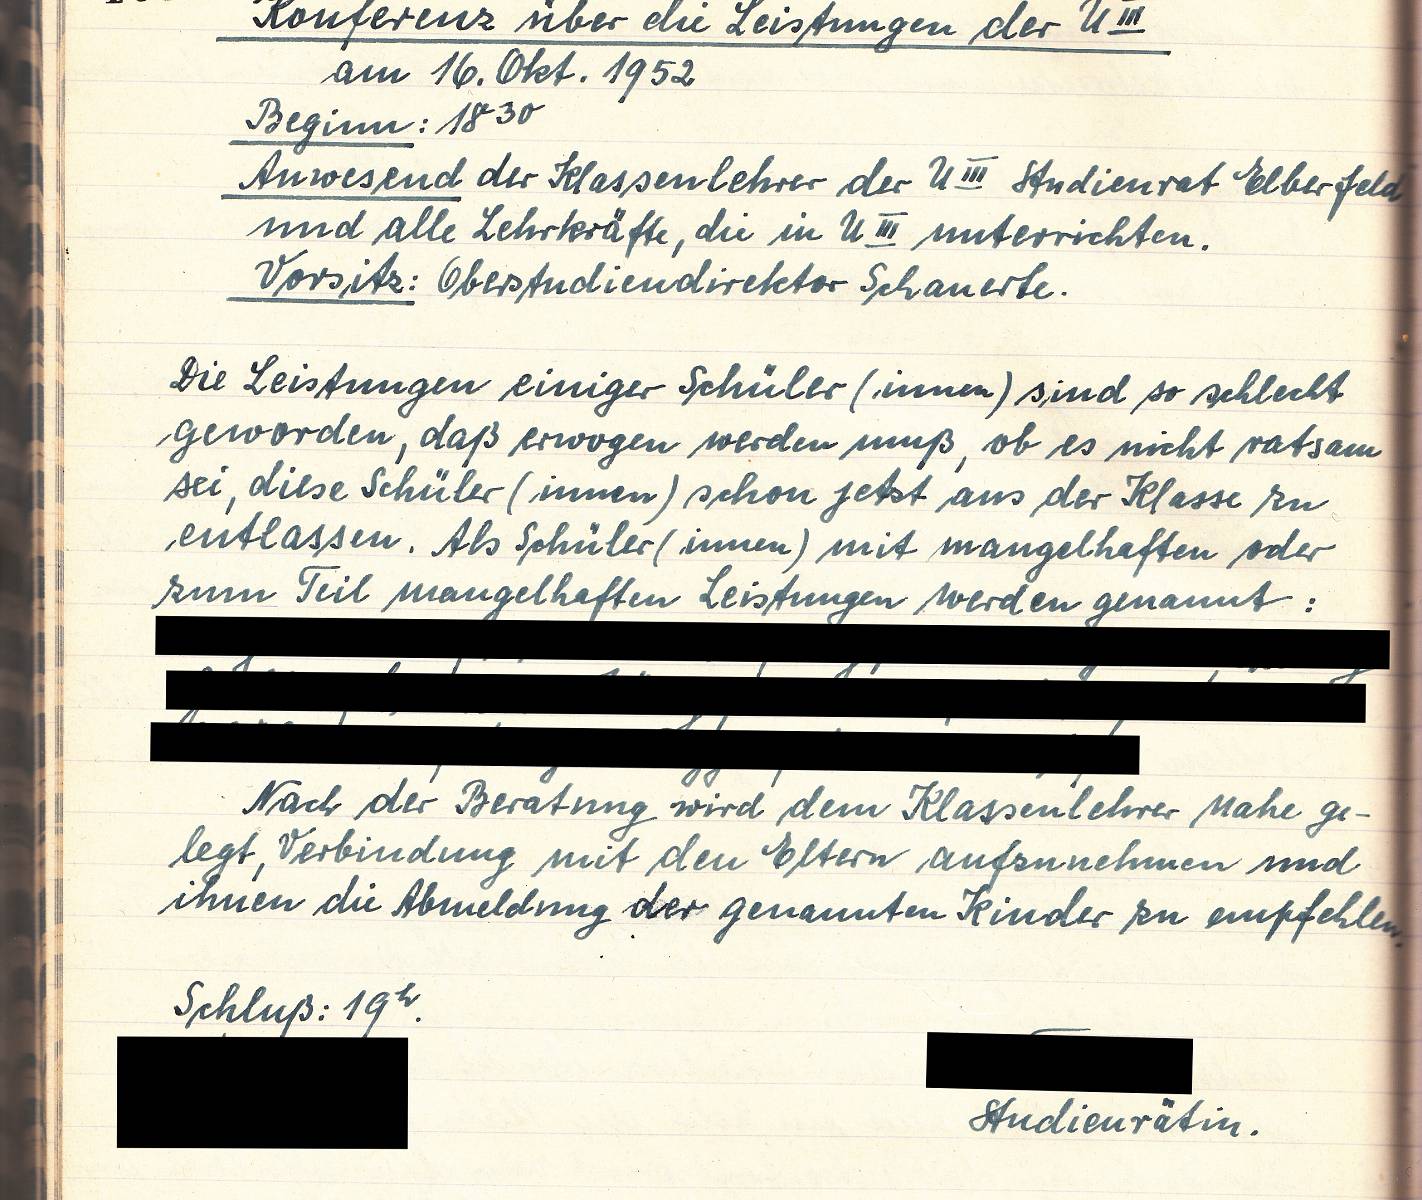 Konferenz über die Leistungen der U III
am 16. Okt. 1952
Beginn: 18 30
Anwesend der Klassenlehrer der U III Studienrat Elberfeld
und alle Lehrkräfte, die in U III unterrichten.
Vorsitz: Oberstudiendirektor Schauerte.
Die Leistungen einiger Schüler (innen) sind so schlecht
geworden, daß erwogen werden muß, ob es nicht ratsam
sei, diese Schüler (innen) schon jetzt aus der Klasse zu
entlassen. Als Schüler (innen) mit mangelhaften oder
zum Teil mangelhaften Leistungen werden genannt:
Nach der Beratung wird dem Klassenlehrer nahe ge-
legt, Verbindung mit den Eltern aufzunehmen und
ihnen die Abmeldung der genannten Kinder zu empfehlen.
Schluß: 19h.
Studienrätin.